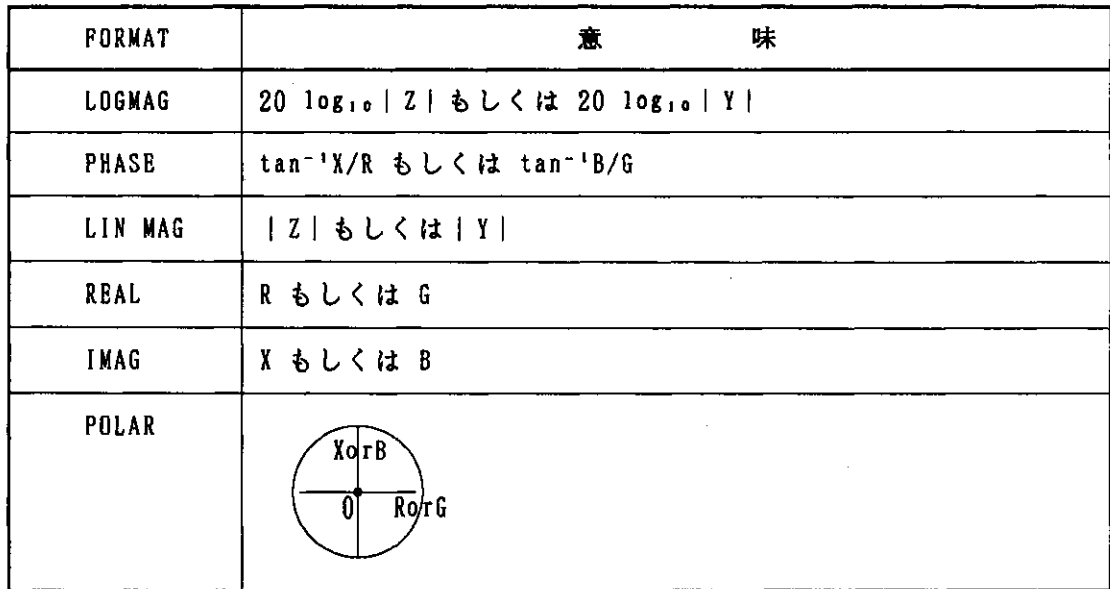 FORMAT 意 味
LOGMAG 20 log₁₀|Z|もしくは 20 log₁₀|Y|
PHASE tan⁻¹X/R もしくは tan⁻¹B/G
LIN MAG |Z|もしくは|Y|
REAL R もしくは G
IMAG X もしくは B
POLAR
XorB
0 RorG